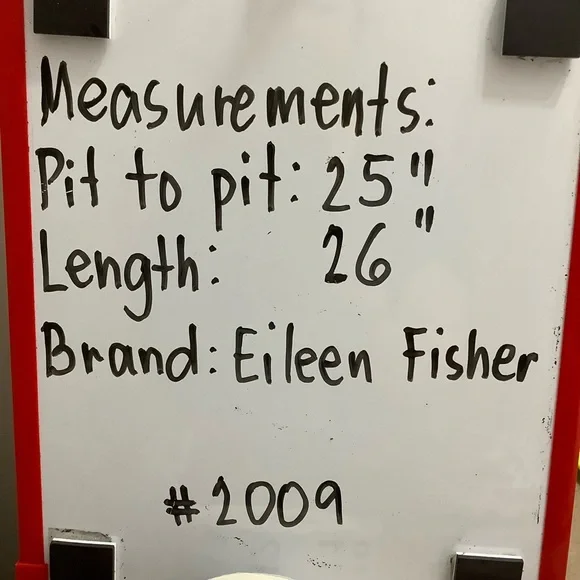 Measurements:
Pit to pit: 25"
Length: 26"
Brand: Eileen Fisher
#2009